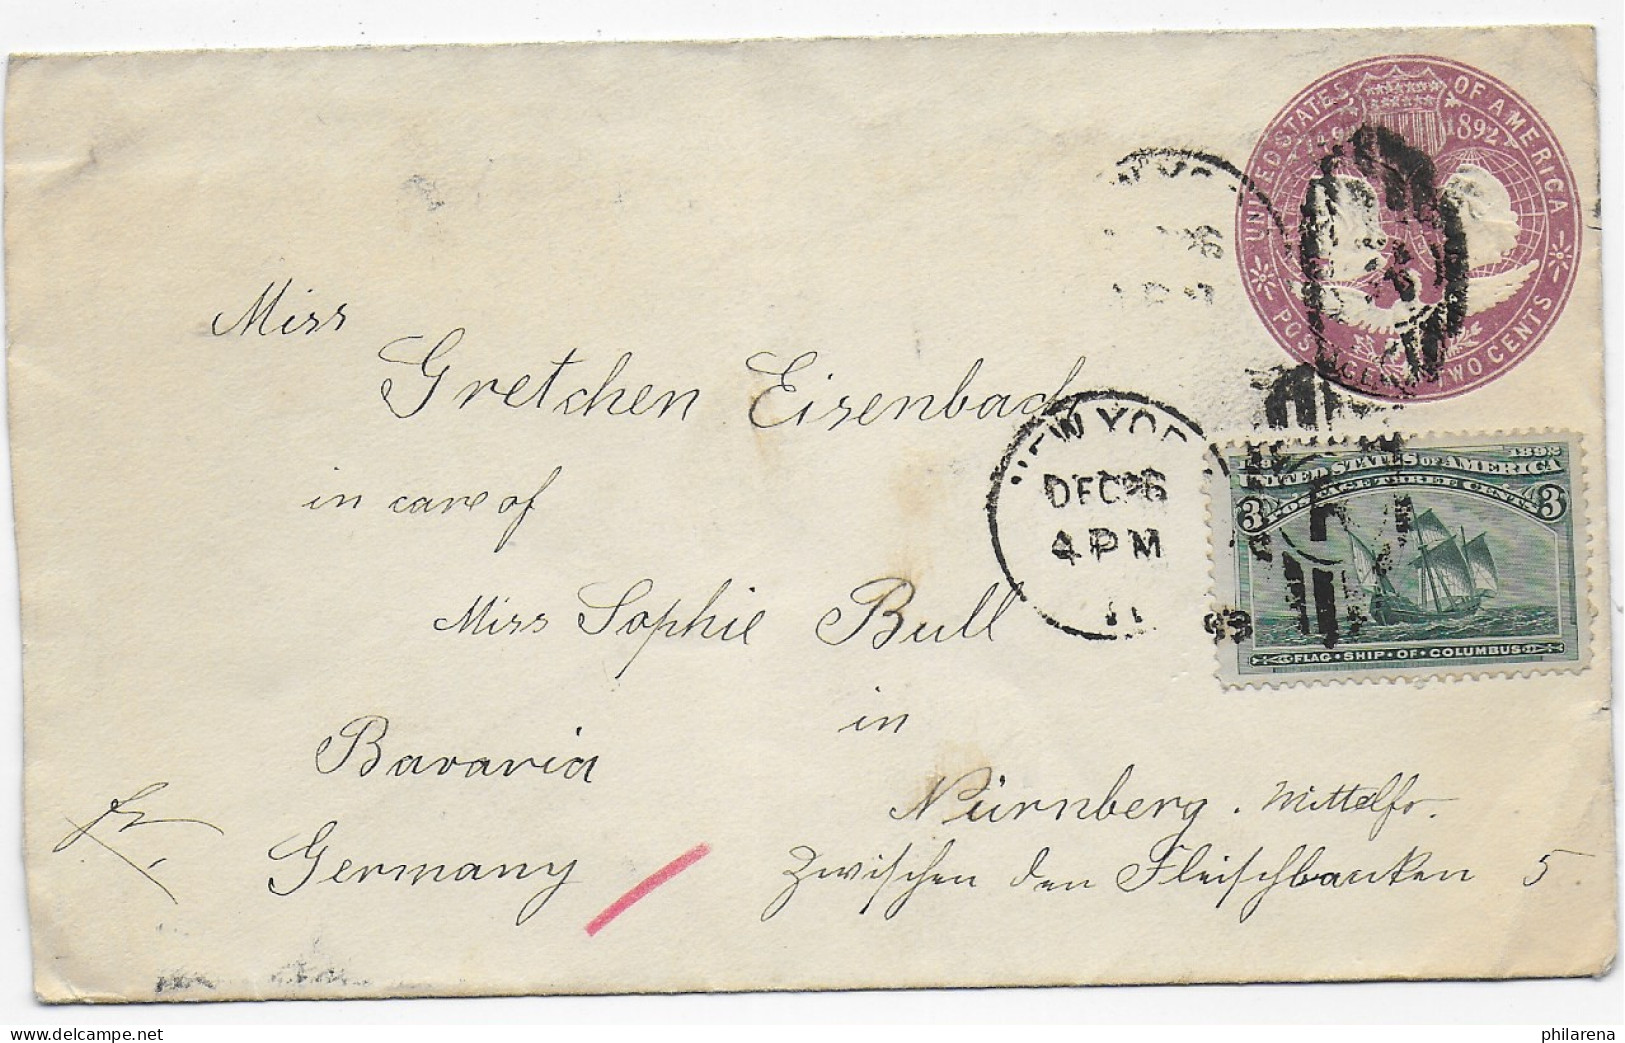 UNITED STATES OF AMERICA
1892
POSTAGE TWO CENTS
NEW YOR
DEC 26
4 PM
93
1892
UNITED STATES OF AMERICA
POSTAGE THREE CENTS
3 3
FLAG·SHIP·OF·COLUMBUS
Miss
Gretchen Eisenbach
in care of
Miss Sophie Bull
in
Bavaria
Nürnberg. Mittelfr.
Germany
Zwischen den Fleischbanken 5
philarena